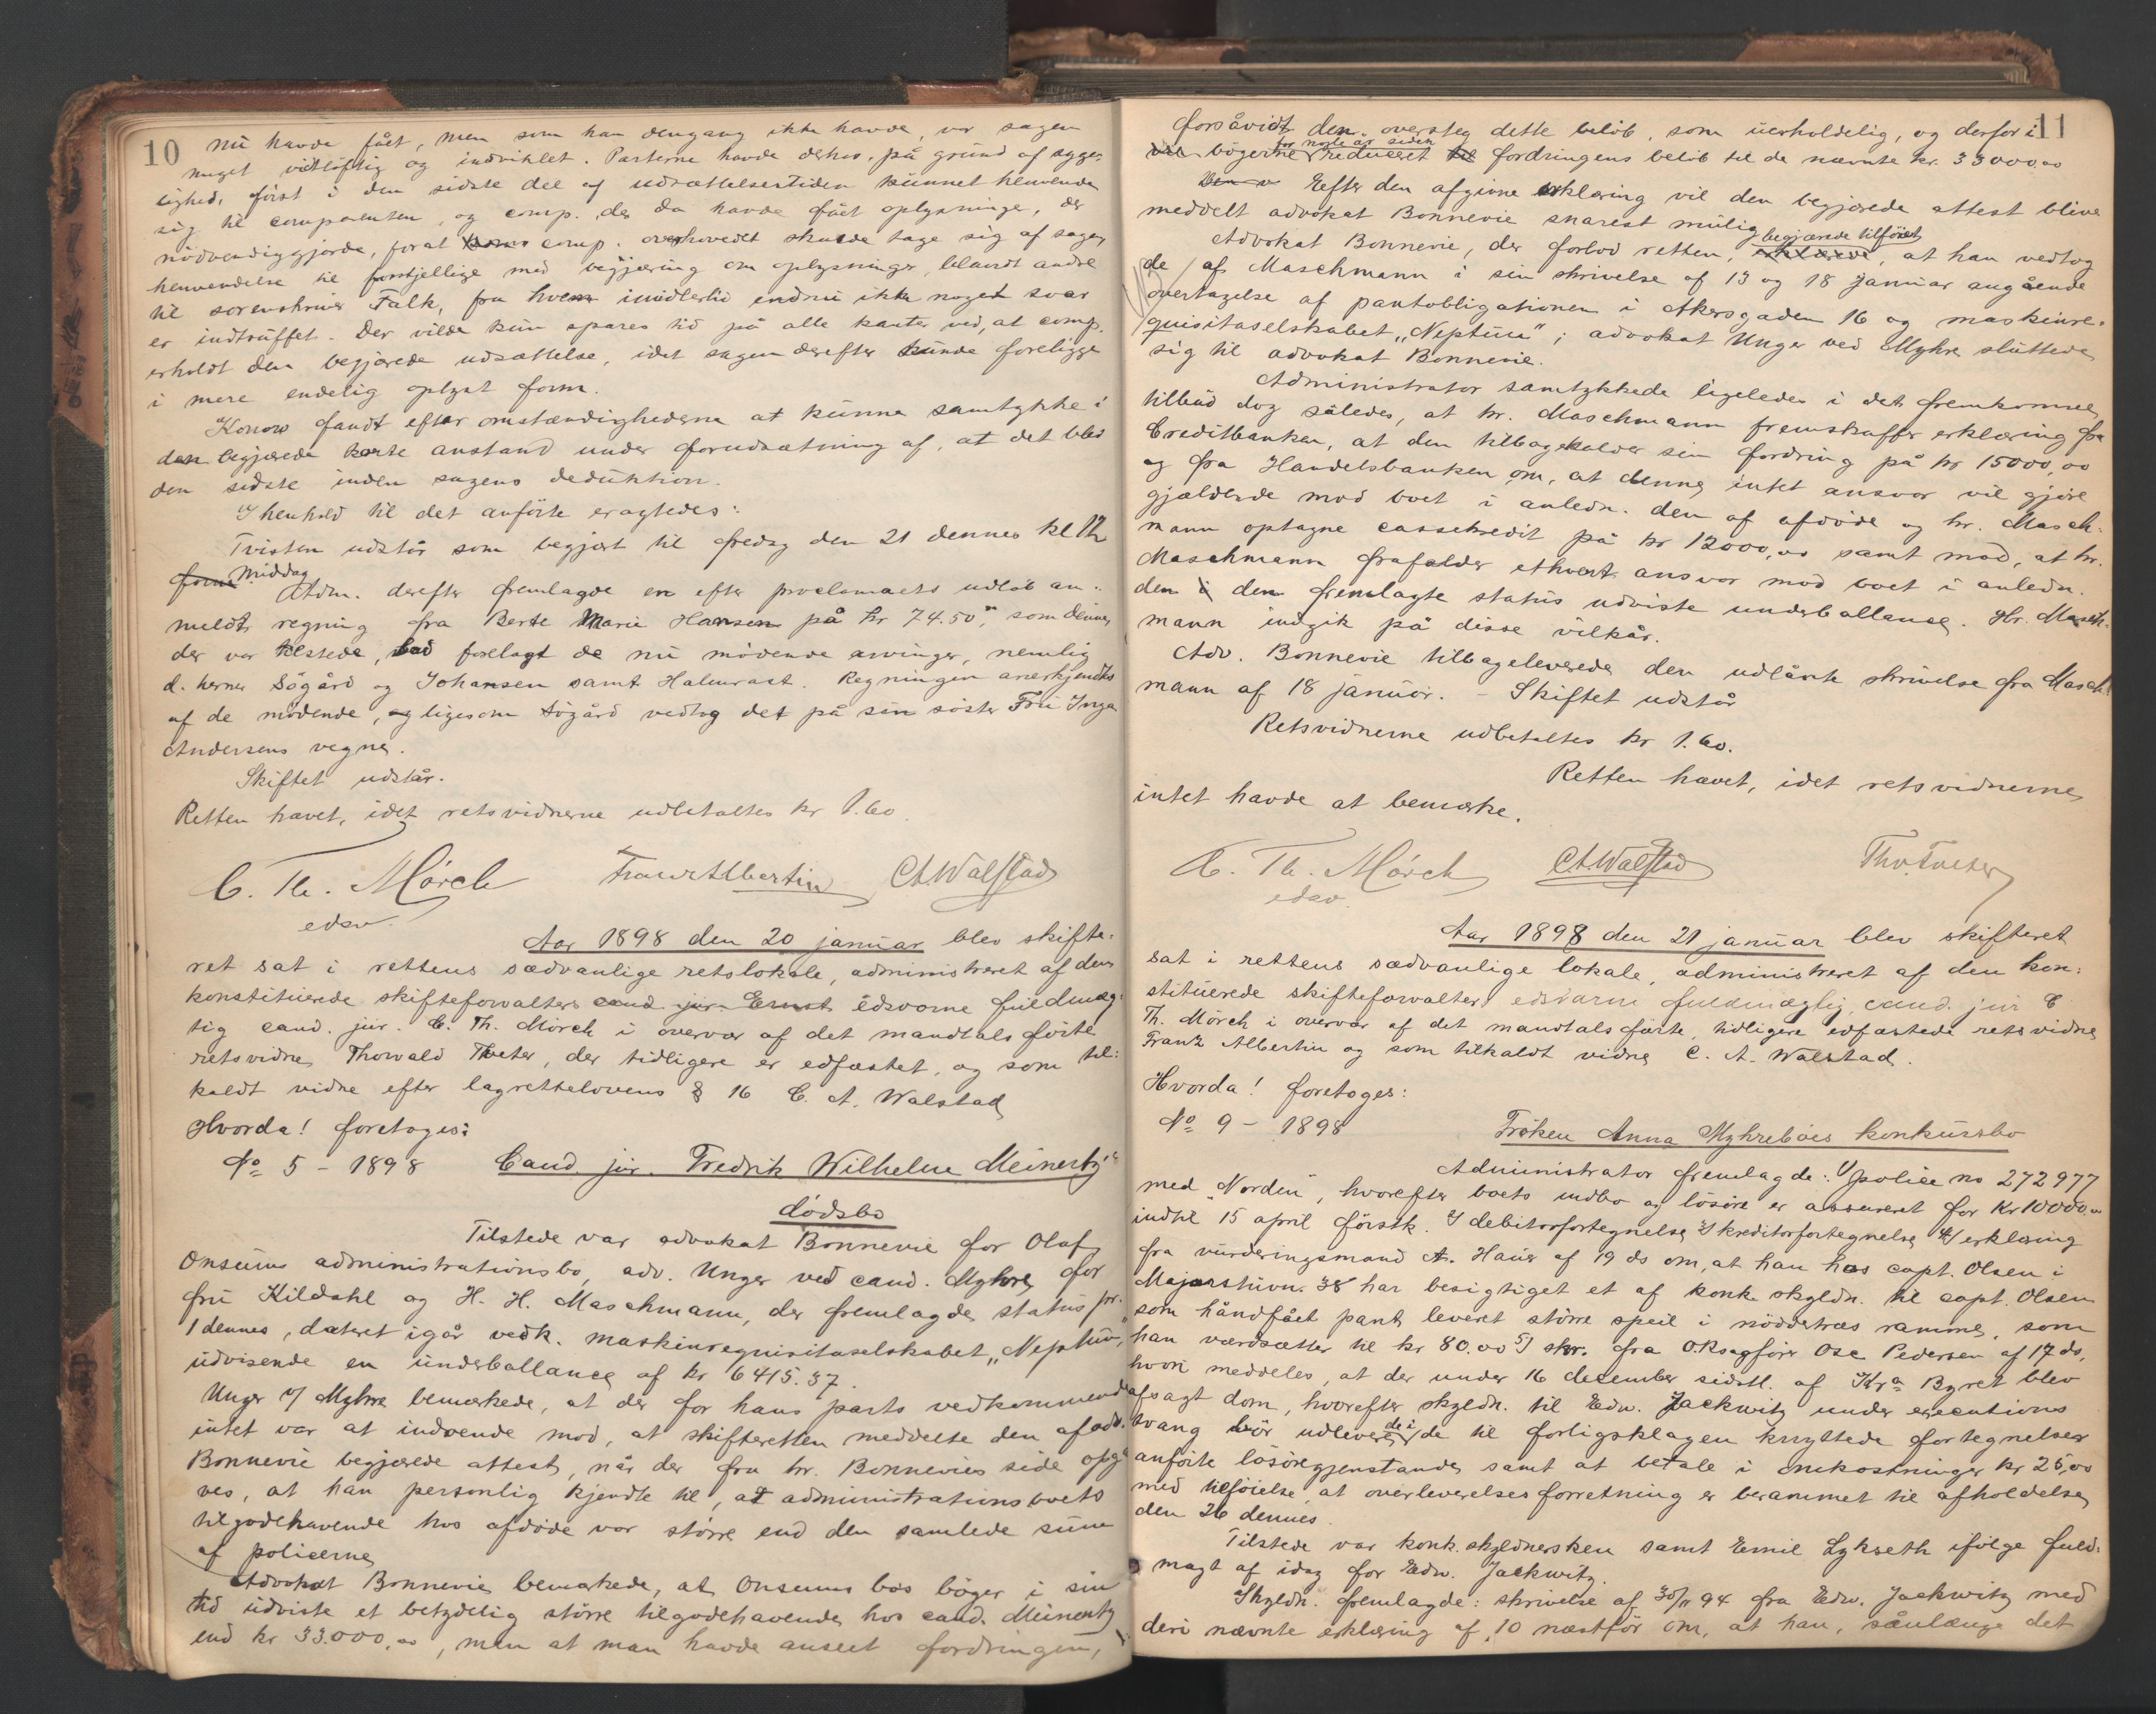 10
nu havde fået, men som han dengang ikke havde, var sagen
meget vidtløftig og indviklet. Parterne havde derhos, på grund af syge-
lighed, først i den sidste del af udsættelsestiden kunnet henvende
sig til comparenten, og comp. der da havde fået oplysninge, der
nödvendiggjorde, forat comp. overhovedet skulde tage sig af sagen,
henvendelse til forskjellige med begjæring om oplysninger, blandt andre
til sorenskriver Falk, fra hvem imidlertid endnu ikke noget svar
er indtruffet. Der vilde kun spares tid på alle kanter ved, at comp.
erholdt den begjærede udsættelse, idet sagen derefter kunde foreligge
i mere endelig oplyst form.
Konow fandt efter omstændighederne at kunne samtykke i
den begjærede korte anstand under forudsætning af, at det blev
den sidste inden sagens deduktion.
I henhold til det anförte eragtedes:
Tvisten udstår som begjært til fredag den 21 dennes kl 12
form middag
Adm. derefter fremlagde en efter proclamaets udløb an-
meldt regning fra Berte Marie Hansen på kr 74.50, som denne,
der var tilstede, bad forelagt de nu mödende arvinger, nemlig
d. herrer Sögård og Johansen samt Halmrast. Regningen anerkjendtes
af de mödende, og ligesom Sögård vedtog det på sin söster Fru Inga
Andersens vegne.
Skiftet udstår.
Retten hævet, idet retsvidnerne udbetaltes kr 1.60.
C. Th. Mörch Franz Albertin C A Walstad
edsv.
Aar 1898 den 20 januar blev skifte-
ret sat i rettens sædvanlige retslokale, administreret af den
konstituerede skifteforvalter cand. jur. Ernst edsvorne fuldmæg-
tig cand. jur. C. Th. Mörch i overvær af det mandtalsførte
retsvidne Thorvald Tveter, der tidligere er edfæstet, og som til-
kaldt vidne efter lagrettelovens § 16 C. A. Walstad
Hvorda! foretoges:
No 5 - 1898 Cand. jur. Fredrik Wilhelm Meinertz'
dödsbo
Tilstede var advokat Bonnevie for Olaf
Onsums administrationsbo, adv. Unger ved cand. Myhre for
fru Kildahl og H. H. Maschmann, der fremlagde status pr.
1 dennes, dateret igår vedk. maskinrequisitaselskabet „Neptun",
udvisende en underballance af kr 6415.37.
Unger v/ Myhre bemerkede, at der for hans parts vedkommende
intet var at indvende mod, at skifteretten meddelte den af adv.
Bonnevie begjærede attest, når der fra hr. Bonnevies side opga-
ves, at han personlig kjendte til, at administrationsboets
tilgodehavende hos afdöde var större end den samlede sum
af policerne
Advokat Bonnevie bemærkede, at Onsums bos böger i sin
tid udviste et betydelig större tilgodehavende hos cand. Meinertz
end kr 33.000,00, men at man havde anseet fordringen,
11
forsåvidt den oversteg dette beløb, som uerholdelig, og derfor i
bögerne for nogle år siden reduceret til fordringens beløb til de nævnte kr. 33000,00
Den v Efter den afgivne erklæring vil den begjærede attest blive
meddelt advokat Bonnevie snarest mulig
Advokat Bonnevie, der forlod retten, erklærede begjærede tilföiet, at han vedtog
de af Maschmann i sin skrivelse af 13 og 18 januar angående
overtagelse af pantobligationen i Akersgaden 16 og maskinre-
quisitaselskabet „Neptun"; advokat Unger ved Myhre sluttede
sig til advokat Bonnevie.
Administrator samtykkede ligeledes i det fremkomne
tilbud dog således, at hr. Maschmann fremskaffer erklæring fra
Creditbanken, at den tilbagekalder sin fordring på kr 15000,00
og fra Handelsbanken om, at denne intet ansvar vil gjöre
gjældende mod boet i anledn. den af afdöde og hr. Masch-
mann optagne cassekredit på kr 12000,00 samt mod, at hr.
Maschmann frafalder ethvert ansvar mod boet i anledn.
den i den fremlagte status udviste underballance. Hr. Masch-
mann indgik på disse vilkår.
Adv. Bonnevie tilbageleverede den udlånte skrivelse fra Masch-
mann af 18 januar. - Skiftet udstår
Retsvidnerne udbetaltes kr 1.60.
Retten hævet, idet retsvidnerne
intet havde at bemerke.
C. Th. Mörch C A Walstad Thv. Tveter
edsv.
Aar 1898 den 21 januar blev skifteret
sat i rettens sædvanlige lokale, administreret af den kon-
stituerede skifteforvalter, edsvorne fuldmægtig, cand. jur C
Th. Mörch i overvær af det mandtalsførte, tidligere edfæstede retsvidne
Franz Albertin og som tilkaldt vidne C. A. Walstad.
Hvorda! foretoges:
No 9 - 1898 Fröken Anna Myhreböes konkursbo
Administrator fremlagde: 1) police no 272977
med „Norden", hvorefter boets indbo og lösöre er assureret for Kr 10000,00
indtil 15 april förstk. 2) debitorfortegnelse 3) kreditorfortegnelse 4) erklæring
fra vurderingsmand A. Hauer af 19 ds om, at han hos capt. Olsen i
Majorstuvn. 38 har besigtiget et af konk. skyldn. til capt. Olsen
som håndfået pant leveret större speil i nöddetræs ramme, som
han værdsætter til kr 80.00 5) skr. fra O.R.sagförer Ose Pedersen af 17 ds,
hvori meddeles, at der under 16 desember sidstl. af Kra Byret blev
afsagt dom, hvorefter skyldn. til Edw. Jackwitz under executions
tvang bör udlevere de i de til forligsklagen knyttede fortegnelser
anförte lösöregjenstande samt at betale i omkostninger kr 25,00
med tilföielse at överleverelsesforretning er berammet til afholdelse
den 26 dennes.
Tilstede var konk. skyldnersken samt Emil Lykseth ifölge fuld-
magt af idag for Edw. Jackwitz.
Skyldn. fremlagde: skrivelse af 30/11 94 fra Edw. Jackwitz med
deri nævnte erklæring af 10 næstför om, at han, sålænge det